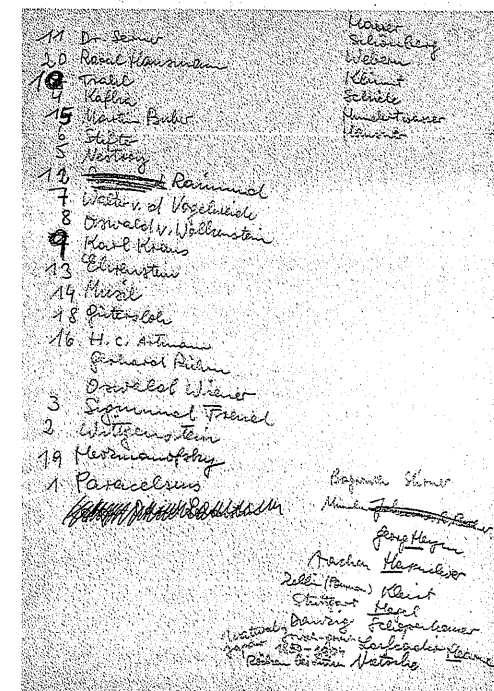 11 Dr. Serner
20 Raoul Hausmann
10 Trakl
4 Kafka
15 Martin Buber
6 Stifter
5 Nestroy
12 Raimund
7 Walter v. d Vogelweide
8 Oswald v. Wolkenstein
9 Karl Kraus
13 Ehrenstein
14 Musil
18 Gütersloh
16 H. C. Artmann
Gerhard Rühm
Oswald Wiener
3 Sigmund Freud
2 Wittgenstein
19 Herzmanofsky
1 Paracelsus
Schönberg
Webern
Klimt
Schiele
Hundertwasser
Stirner
Georg Heym
Aachen Hasenclever
Kleist
Stuttgart Hegel
Danzig Schopenhauer
Japan
1850-1904
Röcken bei Lützen Nietzsche